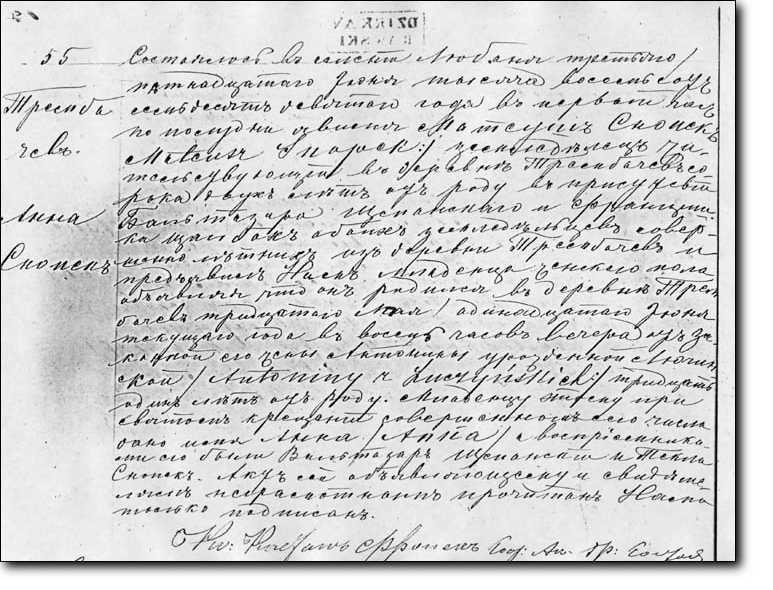 DZIEKAN
55 Состоялось въ селенiи Любаня третьяго /
пятнадцатаго Iюня тысяча восемьсотъ
Трембачевъ. семьдесятъ девятаго года въ первомъ часу
по полудни явился Матеушъ Снопекъ
Mateusz Snopek :/ земледѣлецъ жительствующiй
въ деревни Трембачевъ сорока
двухъ лѣтъ отъ роду въ присутствiи
Анна Снопекъ Бальтазара Щепанскаго и Францишка
обоихъ земледѣльцевъ совершеннолѣтнихъ
изъ деревни Трембачевъ и
предъявилъ Намъ младенца женскаго пола
объявляя что онъ родился въ деревнѣ Трембачевъ
тридцатаго Мая / одинадцатаго Iюня
текущаго года въ восемь часовъ вечера отъ законной
его жены Антонины урожденной Лучинской
/ Antoniny z Łuczyńskich :/ тридцать
одинъ лѣтъ отъ роду. Младенцу этому при
святомъ крещенiи совершенномъ его числа
дано имя Анна / Anna / а воспрiемниками
его были Бальтазаръ Щепанскiй и Текла
Снопекъ. Актъ сей объявляющему и свидѣтелямъ
неграмотнымъ прочитанъ Нами
только подписанъ.
Кс: